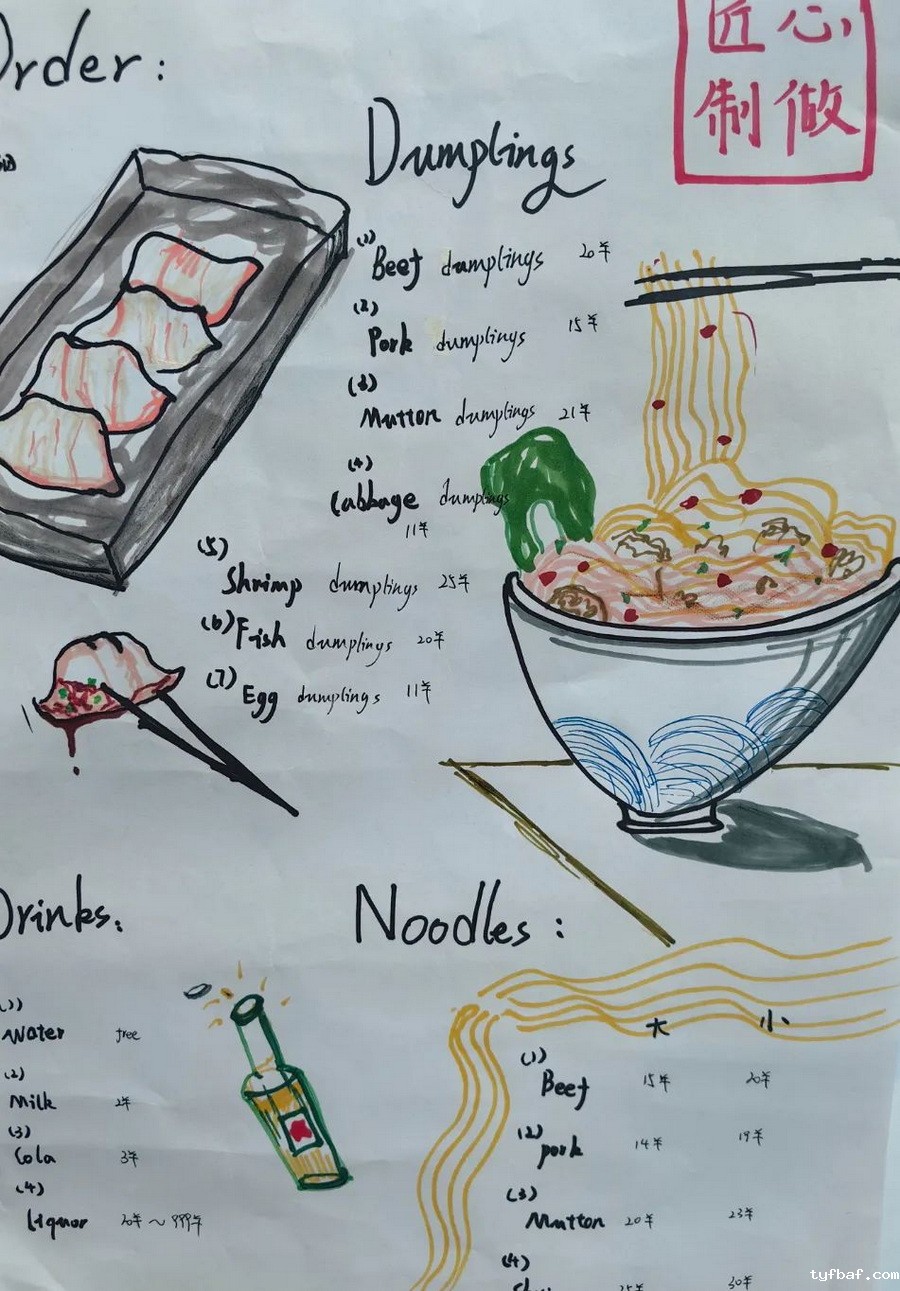 Order:
匠心
制做
Dumplings
(1)
Beef dumplings 20¥
(2)
Pork dumplings 15¥
(3)
Mutton dumplings 21¥
(4)
Cabbage dumplings
11¥
(5)
Shrimp dumplings 25¥
(6) Fish dumplings 20¥
(7) Egg dumplings 11¥
Drinks:
(1)
Water free
(2)
Milk 2¥
(3)
Cola 3¥
(4)
Liquor 20¥~999¥
Noodles:
大 小
(1)
Beef 15¥ 20¥
(2) pork 14¥ 19¥
(3)
Mutton 20¥ 23¥
(4)
25¥ 30¥
tyfbaf.com